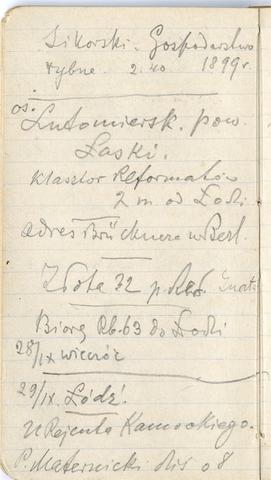 Sikorski. Gospodarstwo
rybne. 2.40 1899 r.
os. Lutomiersk. pow.
Łaski.
Klasztor Reformatów
2 m. od Łodzi
adres Brücknera w Berl.
Złota 32 p.
Biorę Rb. 63 do Łodzi
28/IX wieczór
29/IX. Łódź.
U Rejenta Kamockiego.
P. Maternicki dziś o 8